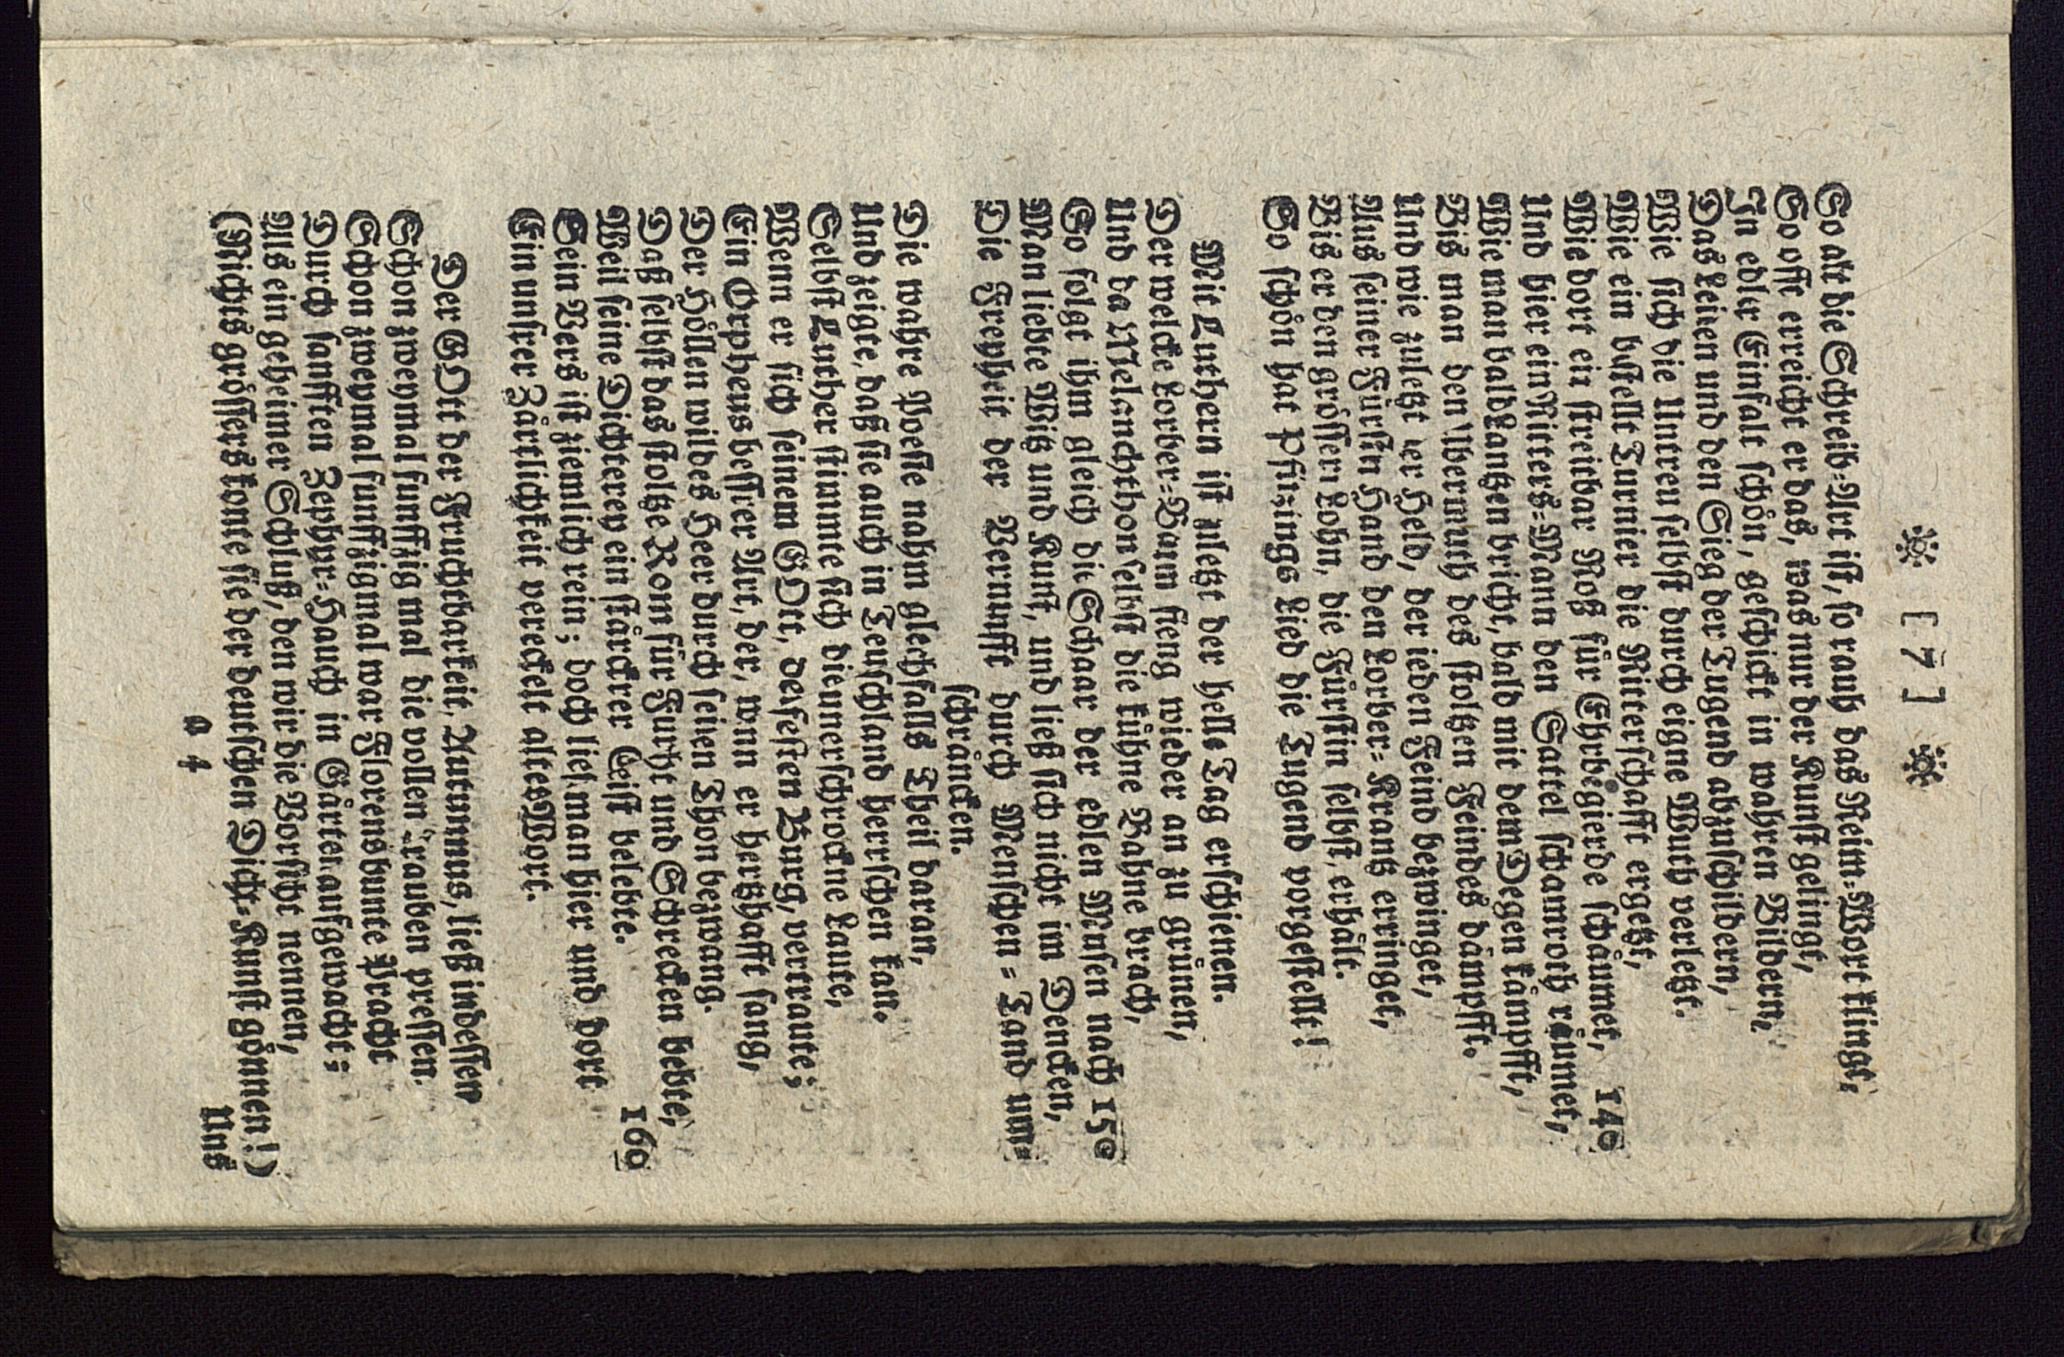 ❊ [ 7 ] ❊
So alt die Schreib=Art ist, so rauh das Reim=Wort klingt,
So offt erreicht er das, was nur der Kunst gelingt,
In edler Einfalt schön, geschickt in wahren Bildern,
Das Leiden und den Sieg der Tugend abzuschildern,
Wie sich die Untreu selbst durch eigne Wuth verletzt.
Wie ein bestellt Turnier die Ritterschafft ergetzt,
Wie dort ein streitbar Roß für Ehrbegierde schäumet, 140
Und hier ein Ritters=Mann den Sattel schamroth räumet,
Wie man bald Lantzen bricht, bald mit dem Degen kämpfft,
Biß man den Ubermuth des stoltzen Feindes dämpfft.
Und wie zuletzt der Held, der ieden Feind bezwinget,
Aus seiner Fürstin Hand den Lorber=Krantz erringet,
Biß er den grössern Lohn, die Fürstin selbst, erhält.
So schön hat Pfitzings Lied die Tugend vorgestellt!
Mit Luthern ist zuletzt der helle Tag erschienen.
Der welcke Lorber=Baum fieng wieder an zu grünen,
Und da Melanchthon selbst die kühne Bahne brach,
So folgt ihm gleich die Schaar der edlen Musen nach 150
Man liebte Witz und Kunst, und ließ sich nicht im Dencken,
Die Freyheit der Vernunfft durch Menschen=Tand um=
schräncken.
Die wahre Poesie nahm gleichfalls Theil daran,
Und zeigte, daß sie auch in Teuschland herrschen kan.
Selbst Luther stimmte sich die unerschrockne Laute,
Wenn er sich seinem GOtt, der festen Burg, vertraute;
Ein Orpheus besserer Art, der, wann er hertzhafft sang,
Der Höllen wildes Heer durch seinen Thon bezwang.
Daß selbst das stoltze Rom für Furcht und Schrecken bebte,
Weil seine Dichterey ein stärckrer Geist belebte. 160
Sein Vers ist ziemlich rein; doch ließ man hier und dort
Ein unsrer Zärtlichkeit vereckelt altes Wort.
Der GOtt der Fruchtbarkeit, Autumnus, ließ indessen
Schon zweymal funffzig mal die vollen Trauben pressen.
Schon zweymal funffzigmal war Florens bunte Pracht
Durch sanfften Zephyr=Hauch in Gärten aufgewacht;
Als ein geheimer Schluß, den wir die Vorsicht nennen,
(Nichts grössers konte sie der deutschen Dicht=Kunst gönnen!)
a 4
Uns